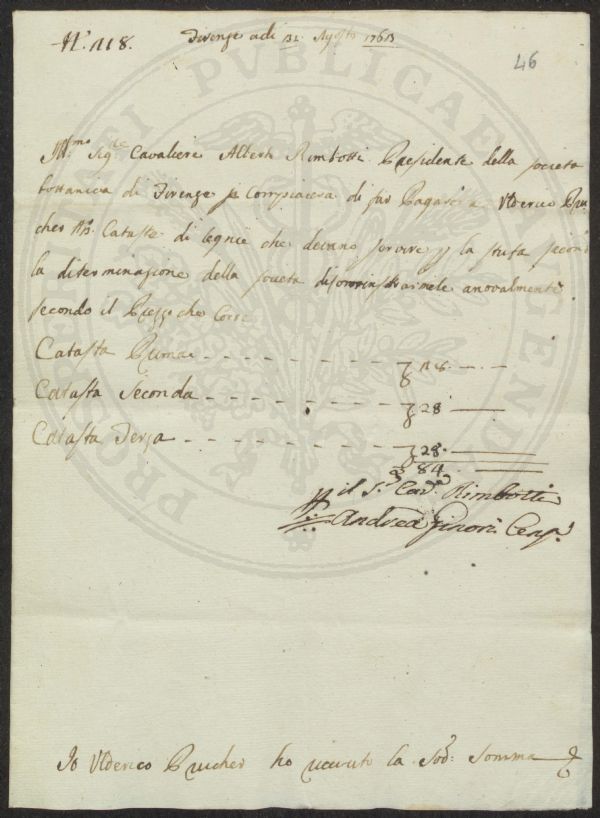 N.° 118.
Firenze adi 31 Agosto 1763
46
Ill.mo Sig.re Cavaliere Alberto Rimbotti Presidente della società
bottanica di Firenze si compiacera di far Pagare a Ulderico Pru
cher N.3. Cataste di legnie che devano servire p la stufa second
la diterminazione della società di annovalmente
secondo il Prezzo che Corre
Catasta Prima - - - - - - - 28. —
Catasta Seconda - - - - - - - 28 —
Catasta Terza - - - - - - - 28. —
84. —
il S.r Cav.e Rimbotti
Andrea Ginori Cens.
Io Ulderico Prucher ho riceuto la Sod.a Somma
PROSPERITATI PVBLICAE AVGENDAE